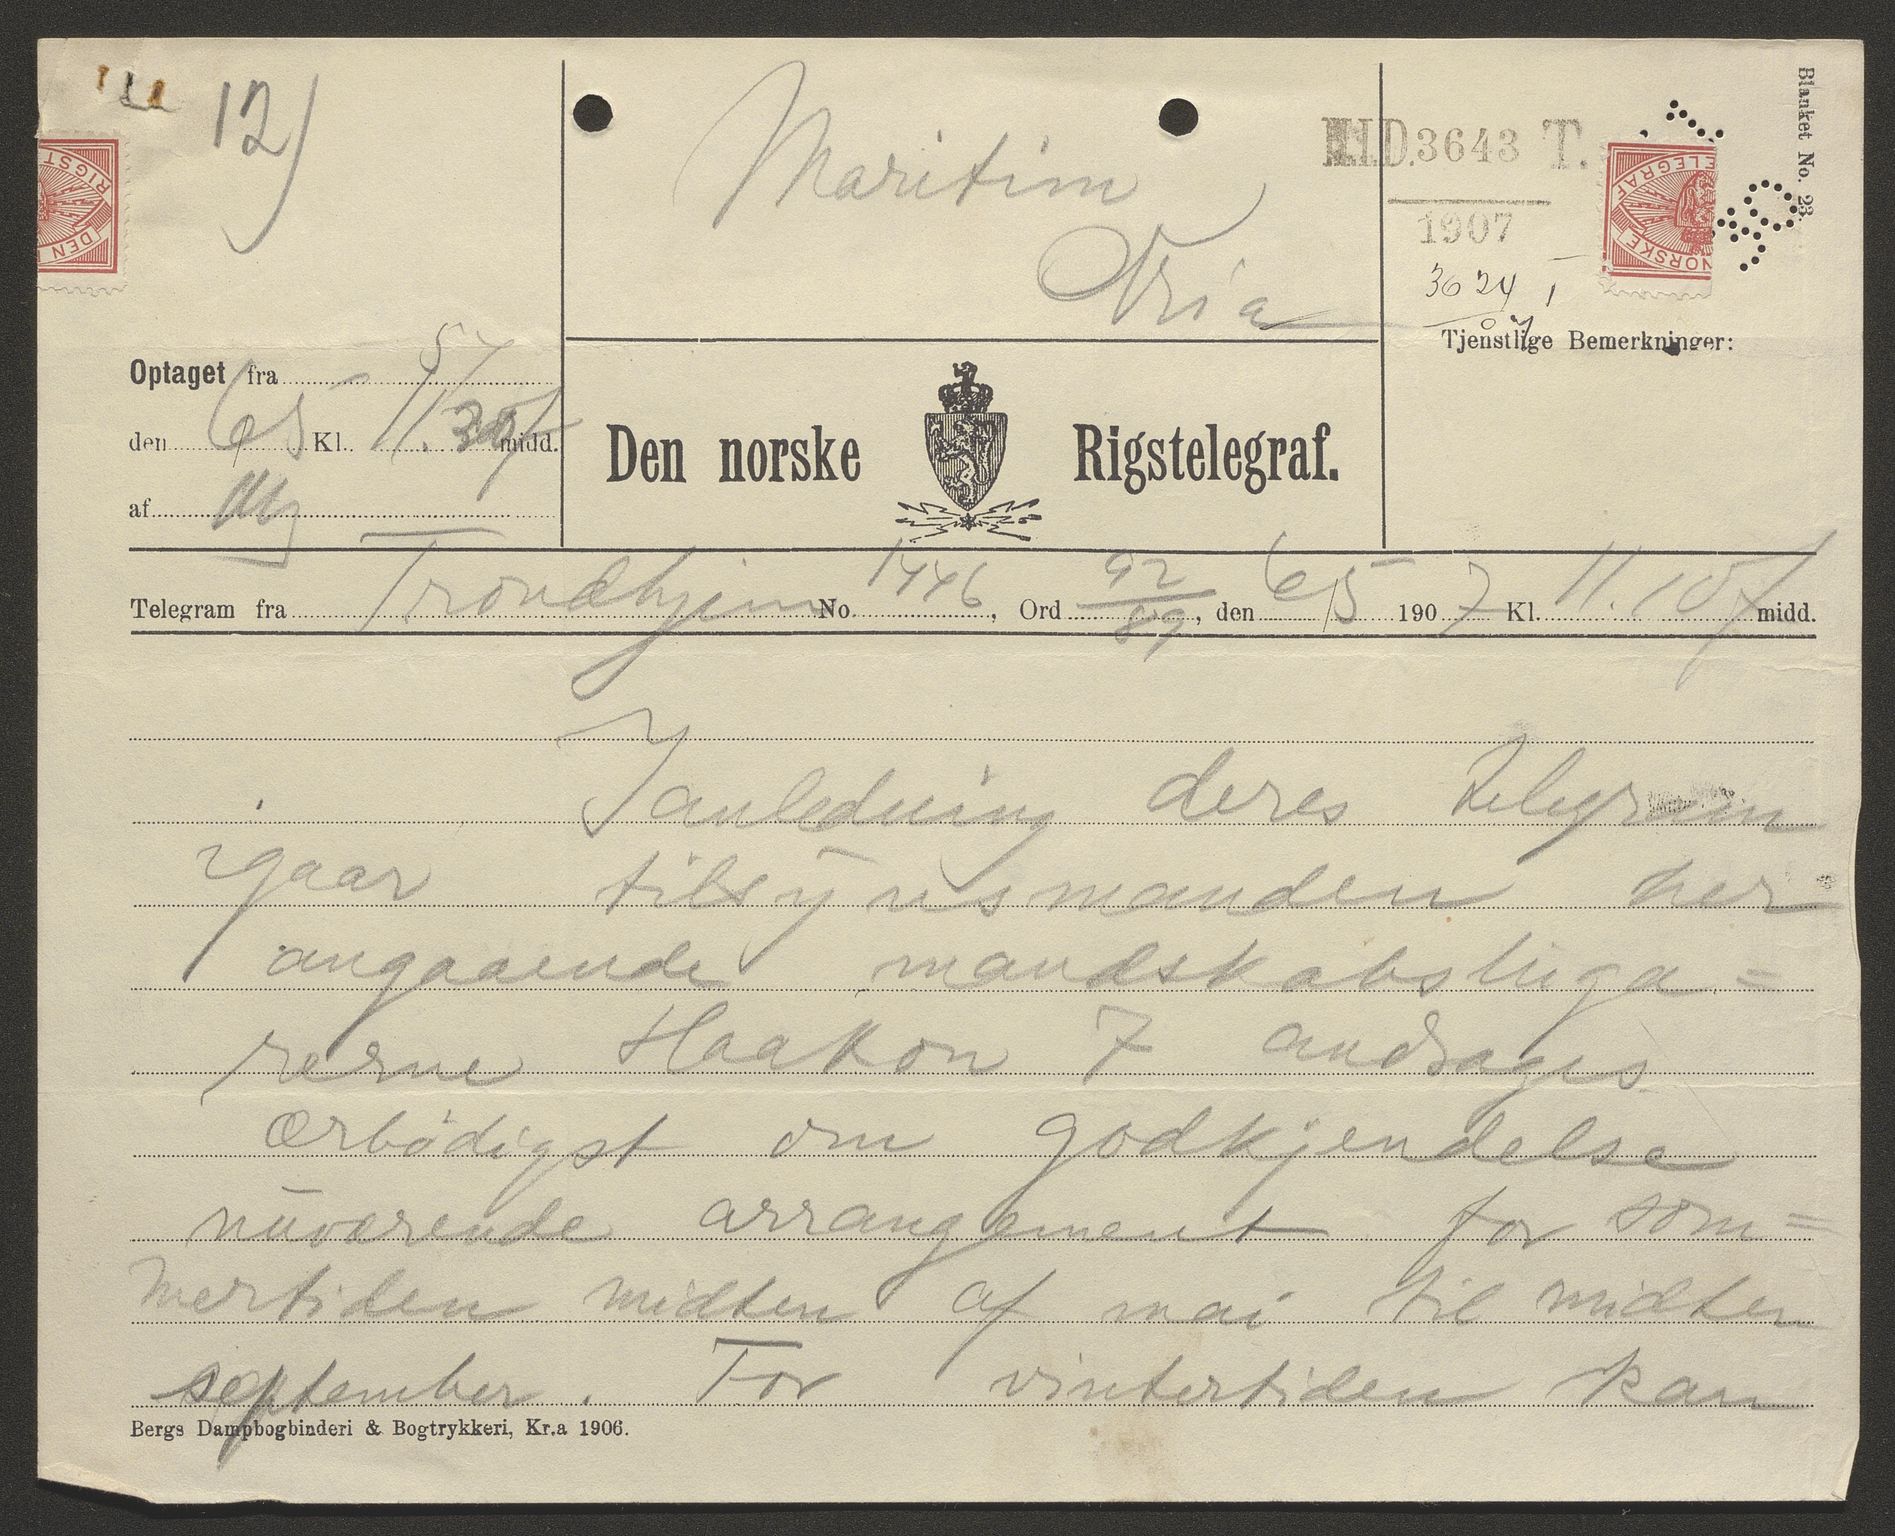 12)
Maritim
Kria
H.I.D. 3643 T.
1907
3624 I
07
Blanket No. 23.
DEN
RIGST
TELEGRAF
NORSKE
Tjenstlige Bemerkninger:
Optaget fra 57
den 6/5 Kl. 11.30 f midd.
af
Den norske Rigstelegraf.
Telegram fra Trondhjem No. 1446, Ord 92/89, den 6/5 1907 Kl. 11.10 f midd.
I anledning deres telegram
igaar tilsynsmanden her
angaaende mandskabsluga=
rerne Haakon 7 andrages
ærbødigst om godkjendelse
nuværende arrangement for som=
mertiden midten af mai til midten
september. For vintertiden kan
Bergs Dampbogbinderi & Bogtrykkeri, Kr.a 1906.